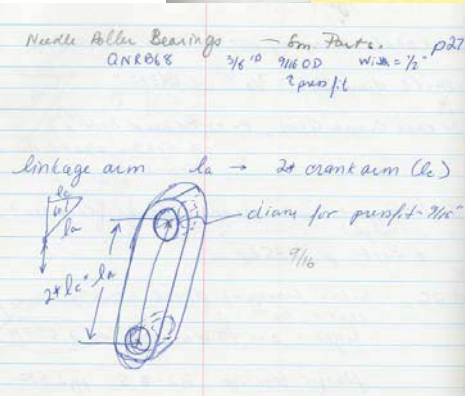 Needle Roller Bearings — Sm. Parts. p27
QNRB68 3/8 ID 9/16 OD Width = 1/2"
press fit
linkage arm la → 2* crank arm (lc)
lc
60°
la
diam for pressfit - 9/16"
9/16
2* lc = la